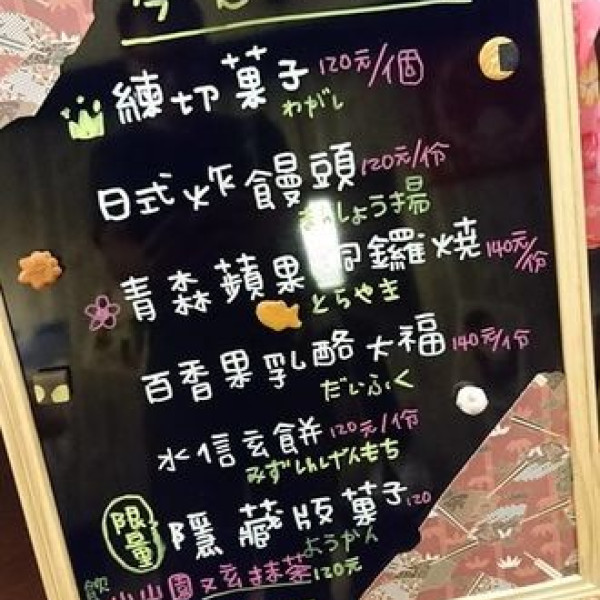 練切菓子 120元/個
わがし
日式炸饅頭 120元/份
しょうま揚
青森蘋果銅鑼燒 140元/份
とらやき
百香果乳酪大福 140元/份
だいふく
水信玄餅 120元/份
みずしんげんもち
限量 隱藏版菓子 120
ようかん
飲 小山園又玄抹茶 120元